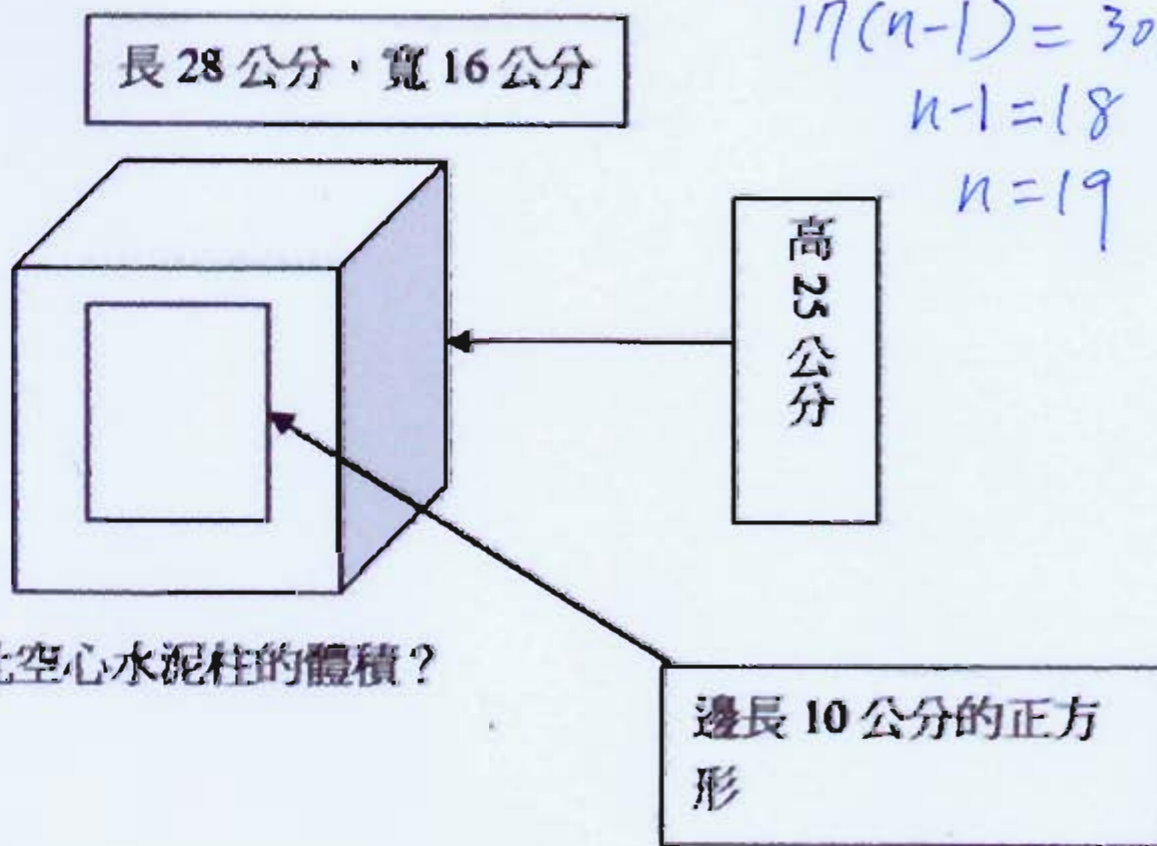 長 28 公分，寬 16 公分
17(n-1) = 30
n-1=18
n=19
高 25 公分
空心水泥柱的體積？
邊長 10 公分的正方
形